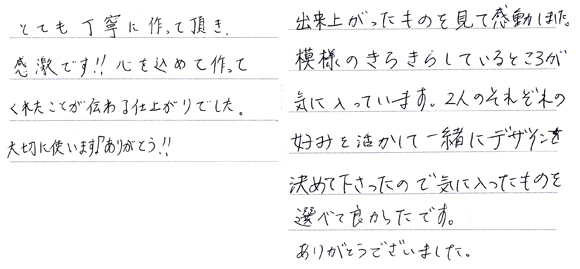 とても丁寧に作って頂き、
感激です!!心を込めて作って
くれたことが伝わる仕上がりでした。
大切に使います♪ありがとう!!
出来上がったものを見て感動しました。
模様のきらきらしているところが
気に入っています。2人のそれぞれの
好みを活かして一緒にデザインを
決めて下さったので気に入ったものを
選べて良かったです。
ありがとうございました。